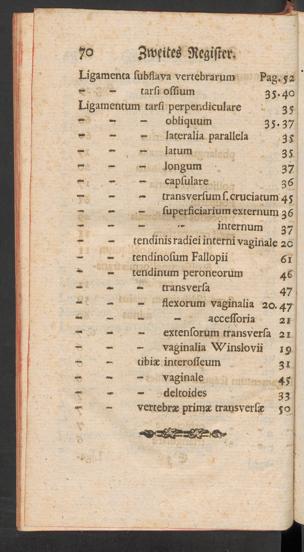 70 Zweites Register.
Ligamenta subflava vertebrarum Pag. 52
- - tarsi ossium 35.40
Ligamentum tarsi perpendiculare 35
- - - obliquum 35.37
- - - lateralia parallela 35
- - - latum 35
- - - longum 37
- - - capsulare 36
- - - transversum s. cruciatum 45
- - - superficiarium externum 36
- - - - internum 37
- - tendinis radiei interni vaginale 20
- - tendinosum Fallopii 61
- - tendinum peroneorum 46
- - - transversa 47
- - - flexorum vaginalia 20.47
- - - - accessoria 21
- - - extensorum transversa 21
- - - vaginalia Winslovii 19
- - tibiæ interosseum 31
- - - vaginale 45
- - - deltoides 33
- - vertebræ primæ transversæ 50